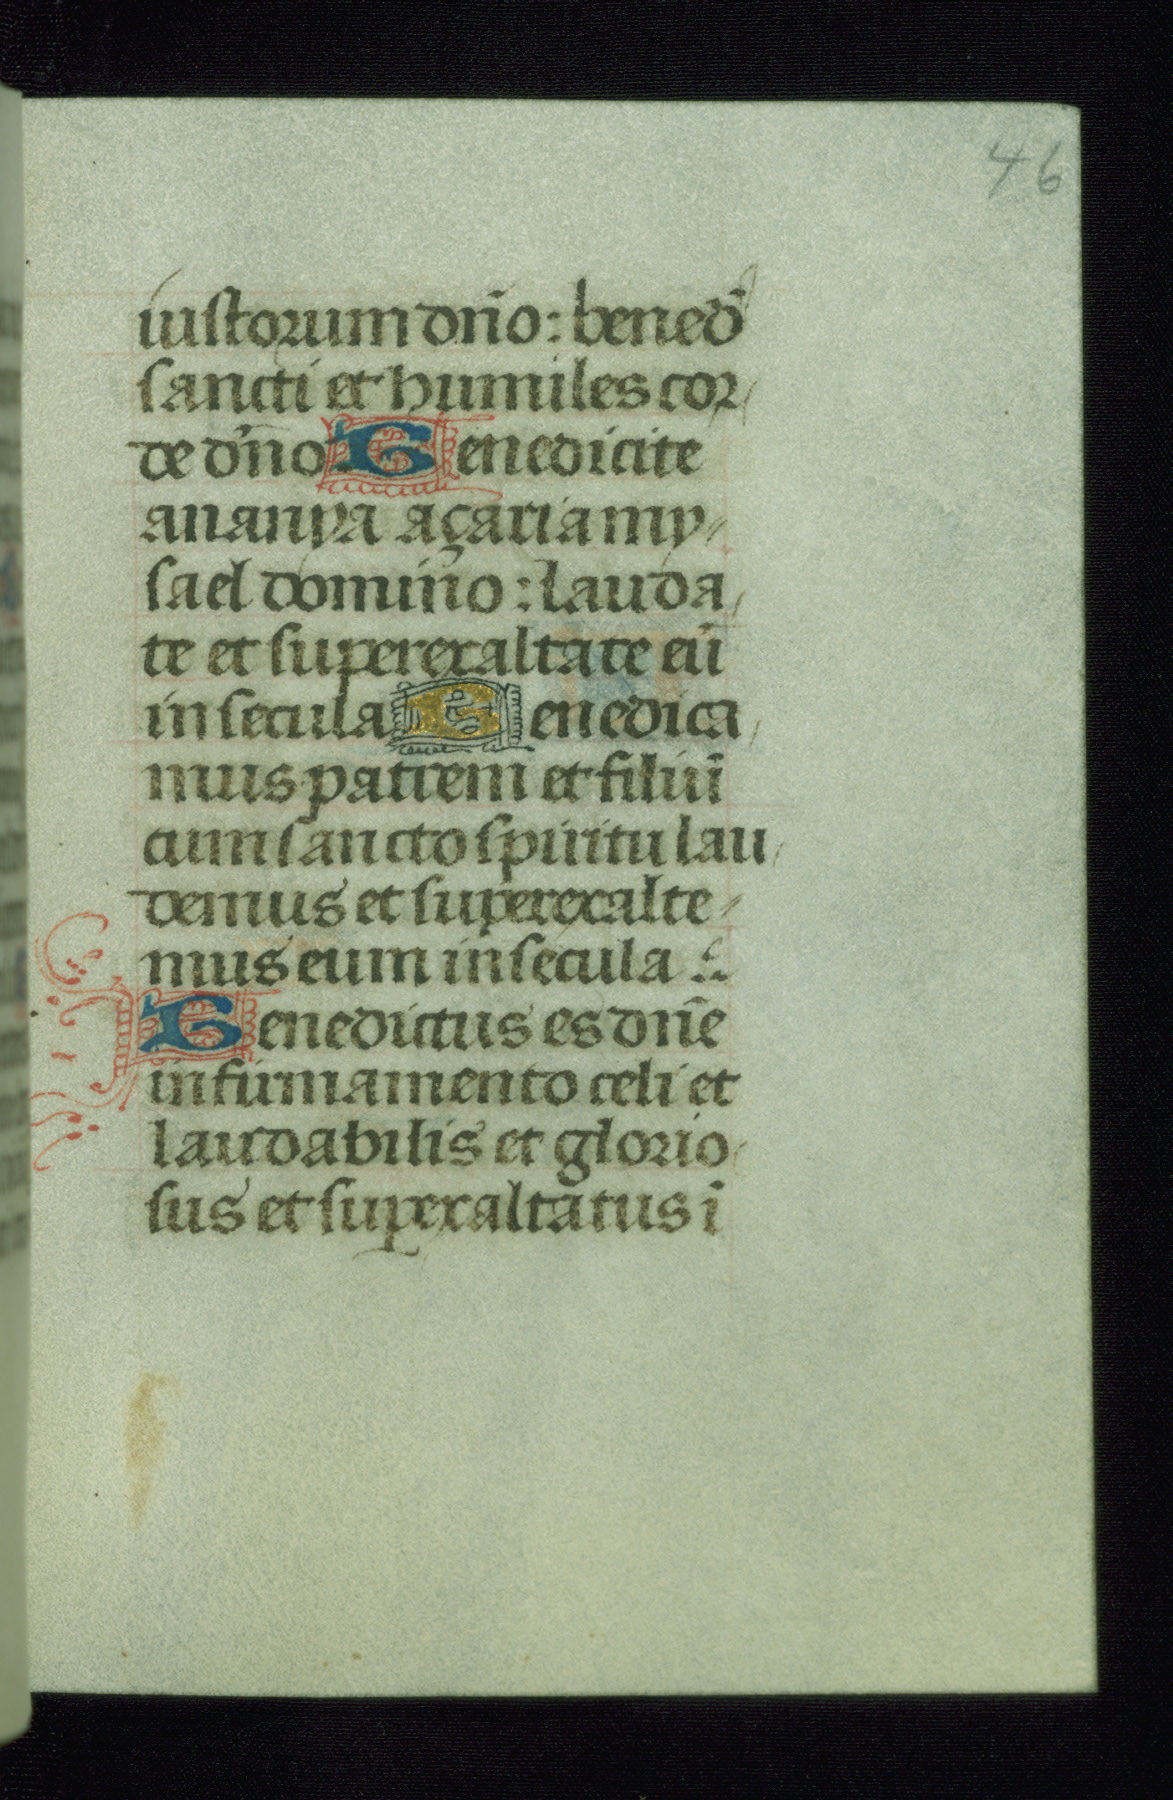 46
iustorum dn̄o: bened̄
sancti et humiles cor
de dn̄o Benedicite
ananya açaria my
sael domino: lauda
te et superexaltate eū
in secula Benedica
mus patrem et filiū
cum sancto spiritu lau
demus et superexalte
mus eum in secula
Benedictus es dn̄e
in firmamento celi et
laudabilis et glorio
sus et suꝑexaltatus ī